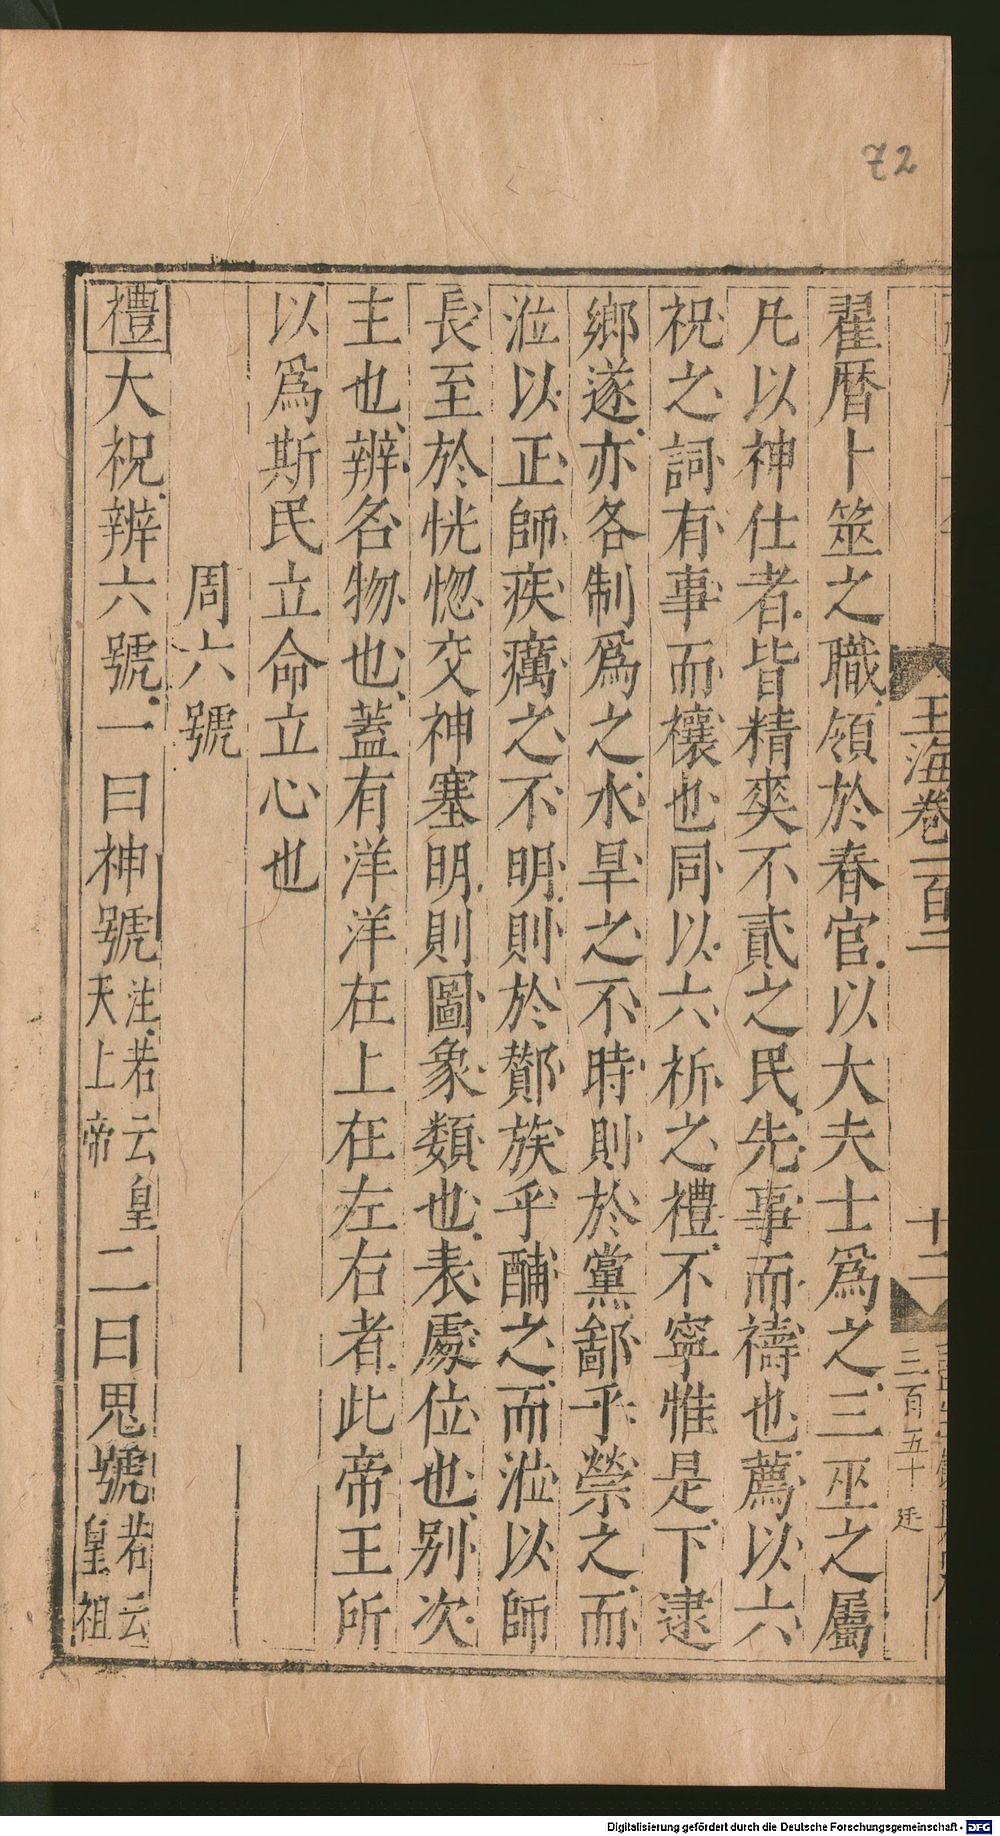 72
玉海卷一百二
十二
三百五十 廷
翟曆卜筮之職領於春官以大夫士爲之三巫之屬
凡以神仕者皆精爽不貳之民先事而禱也薦以六
祝之詞有事而禳也同以六祈之禮不寧惟是下逮
鄉遂亦各制爲之水旱之不時則於黨鄙乎禜之而
涖以正師疾癘之不明則於酇族乎酺之而涖以師
長至於恍惚交神塞明則圖象類也表處位也別次
主也辨名物也蓋有洋洋在上在左右者此帝王所
以爲斯民立命立心也
周六號
禮大祝辨六號一曰神號注若云皇天上帝二曰鬼號若云皇祖
Digitalisierung gefördert durch die Deutsche Forschungsgemeinschaft - DFG